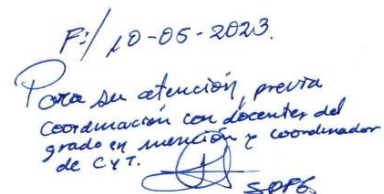 F:/ 10-05-2023.
Para su atención, previa
coordinación con docentes del
grado en mención y coordinador
de CYT.
SDFG